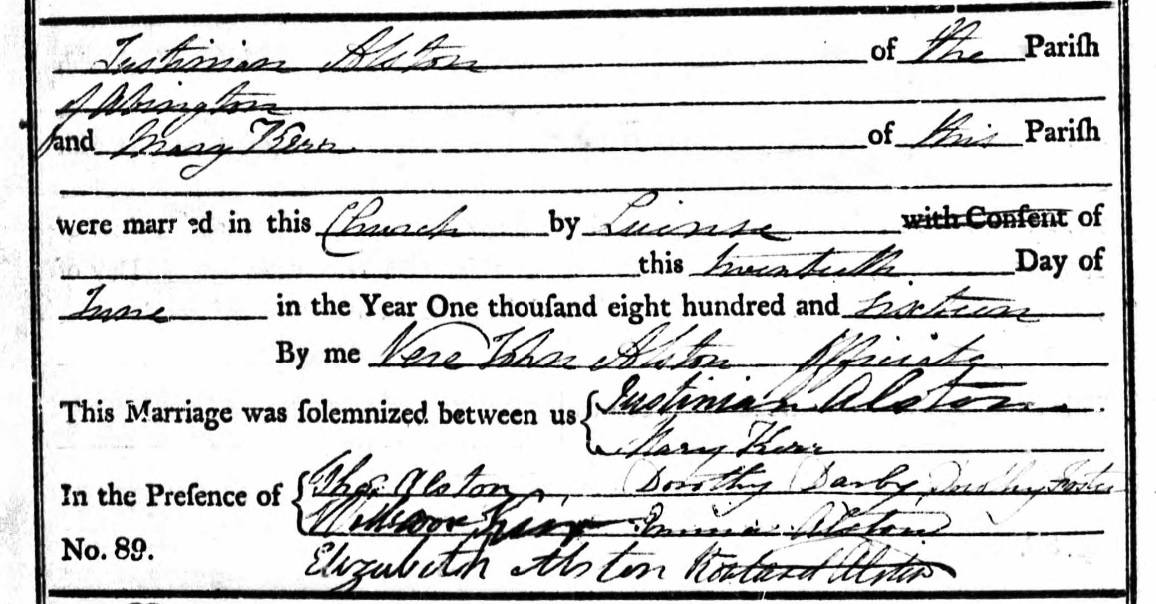 Justinian Alston of the Pariſh
of Abington
and Mary Kerr of this Pariſh
were marr ed in this Church by Licinse with Conſent of
this twentieth Day of
June in the Year One thouſand eight hundred and sixteen
By me Vere John Alston Officiate
This Marriage was ſolemnized between us Justinian Alston
Mary Kerr
In the Preſence of Thos Alston Dorothy Darby Dorothy Foster
Kerr Alston
No. 89. Elizabeth Alston Rowland Alston